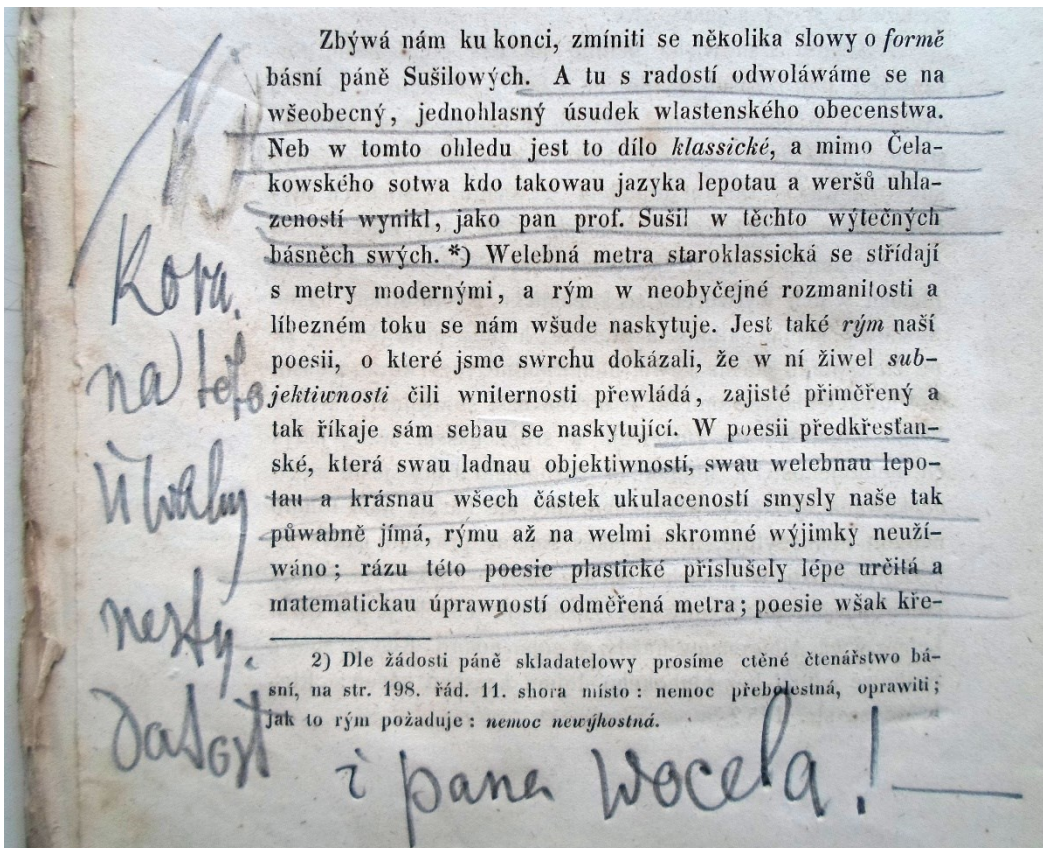 Zbýwá nám ku konci, zmíniti se několika slowy o formě
básní páně Sušilowých. A tu s radostí odwoláwáme se na
wšeobecný, jednohlasný úsudek wlastenského obecenstwa.
Neb w tomto ohledu jest to dílo klassické, a mimo Čela-
kowského sotwa kdo takowau jazyka lepotau a weršů uhla-
zeností wynikl, jako pan prof. Sušil w těchto wýtečných
básněch swých. *) Welebná metra staroklassická se střídají
s metry modernými, a rým w neobyčejné rozmanitosti a
líbezném toku se nám wšude naskytuje. Jest také rým naší
poesii, o které jsme swrchu dokázali, že w ní žiwel sub-
jektiwnosti čili wniternosti přewládá, zajisté přiměřený a
tak říkaje sám sebau se naskytující. W poesii předkřesťan-
ské, která swau ladnau objektiwností, swau welebnau lepo-
tau a krásnau wšech částek ukulaceností smysly naše tak
půwabně jímá, rýmu až na welmi skromné wýjimky neuží-
wáno; rázu této poesie plastické příslušely lépe určitá a
matematickau úprawností odměřená metra; poesie wšak kře-
2) Dle žádosti páně skladatelowy prosíme ctěné čtenářstwo bá-
sní, na str. 198. řád. 11. shora místo: nemoc přebolestná, oprawiti;
jak to rým požaduje: nemoc newýhostná.
na této
Úwahy
nesty.
datost
i pana Wocela! —